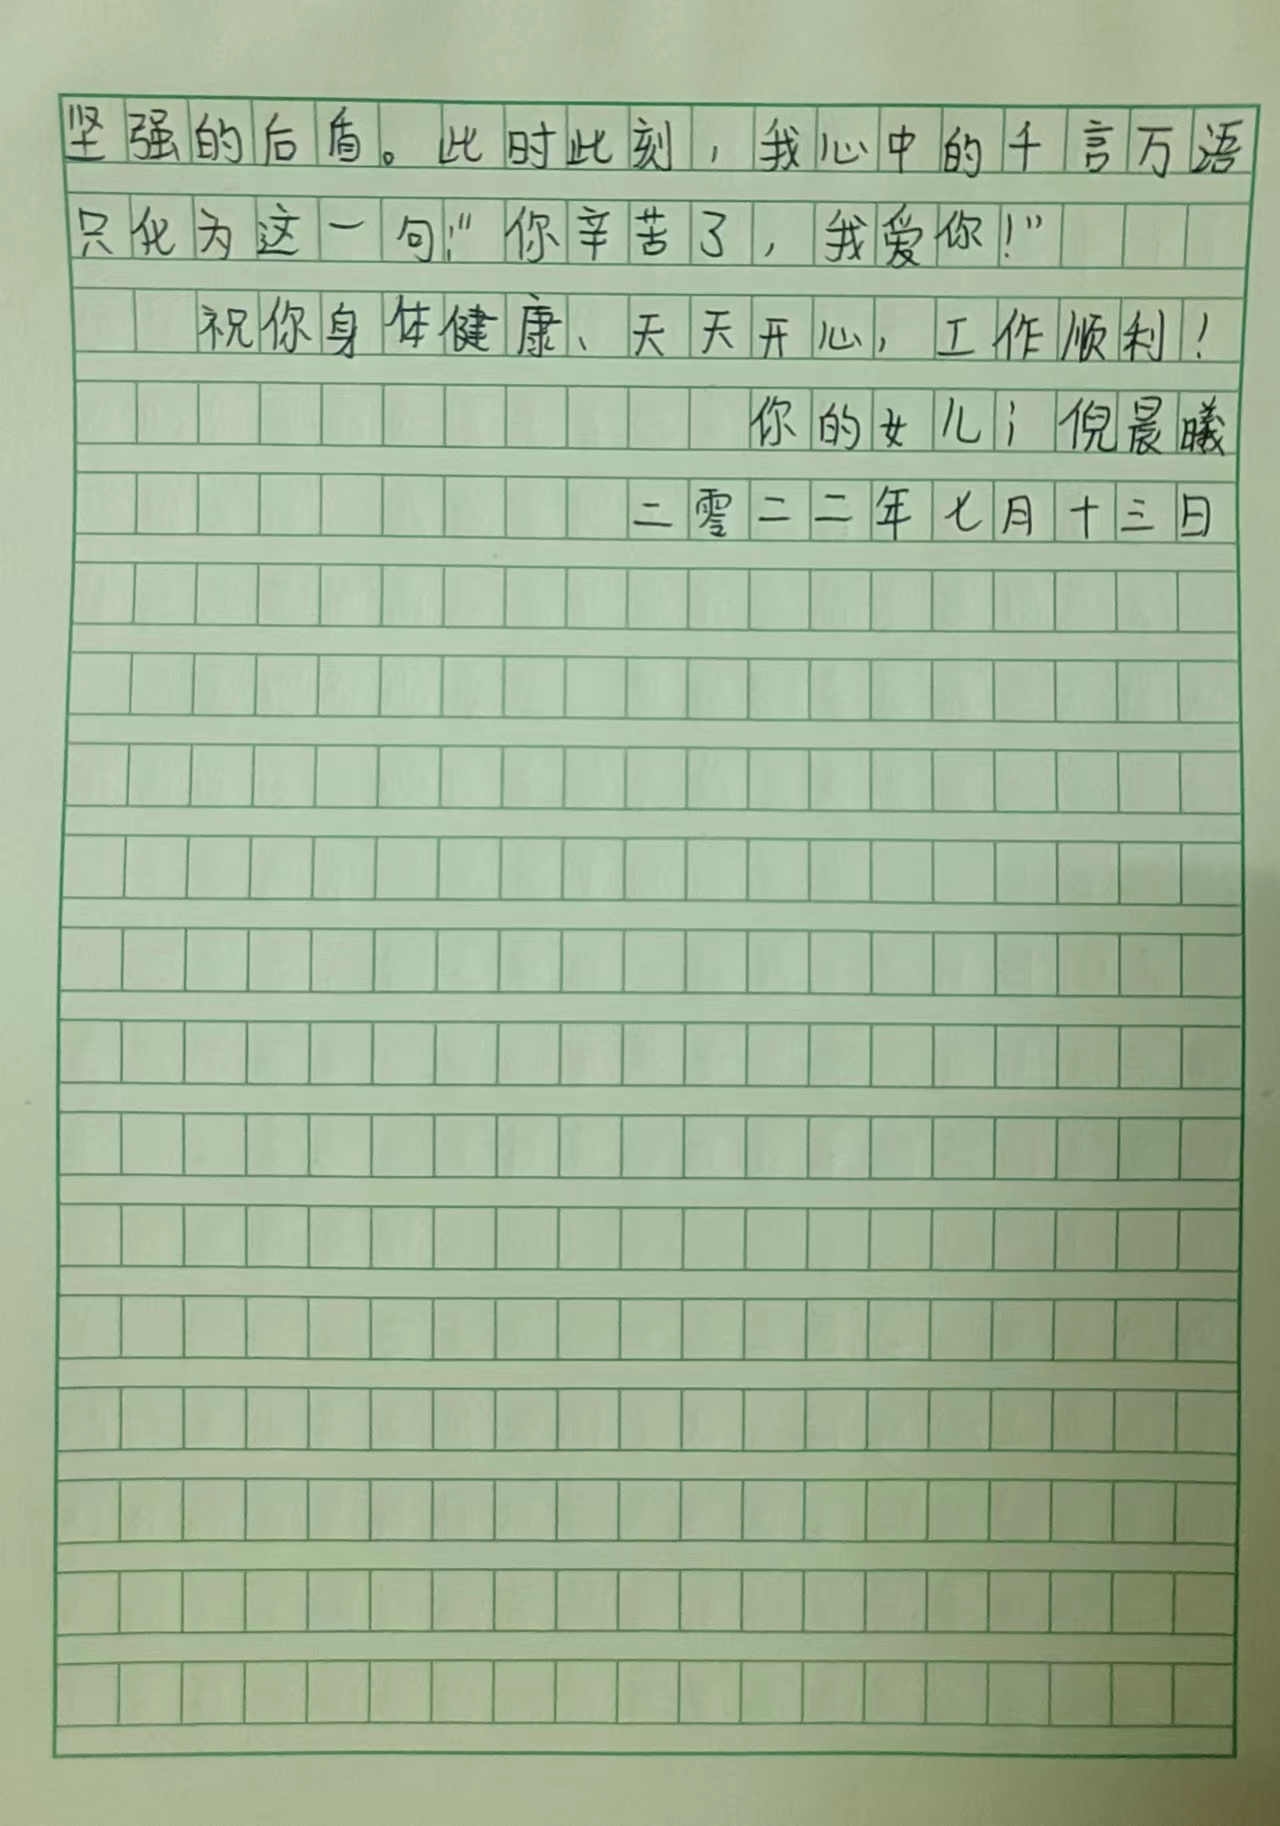 坚强的后盾。此时此刻，我心中的千言万语
只化为这一句：“你辛苦了，我爱你！”
祝你身体健康、天天开心，工作顺利！
你的女儿：倪晨曦
二零二二年七月十三日